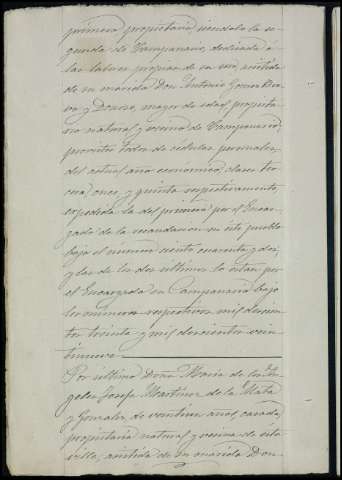 primera propietaria siendolo la se-
gunda de Campanario, dedicada a
las labores propias de su sexo, asistida
de su marido Don Antonio Gomez Bra-
vo y Donoso, mayor de edad, propieta-
rio natural y vecino de Campanario,
provistos todos de cédulas personales
del actual año económico, clases ter-
cera, once, y quinta respectivamente,
expedida la del primero por el Encar-
gado de la recaudacion en este pueblo
bajo el número ciento cuarenta y dos,
y las de los dos últimos lo estan por
el Encargado en Campanario bajo
los números respectivos mil doscien-
tos treinta y mil doscientos vein-
tinueve.
Por último Doña Maria de los An-
geles Josefa Martinez de la Mata
y Gonzalez, de veintiun años, casada,
propietaria natural y vecina de esta
villa, asistida de su marido Don